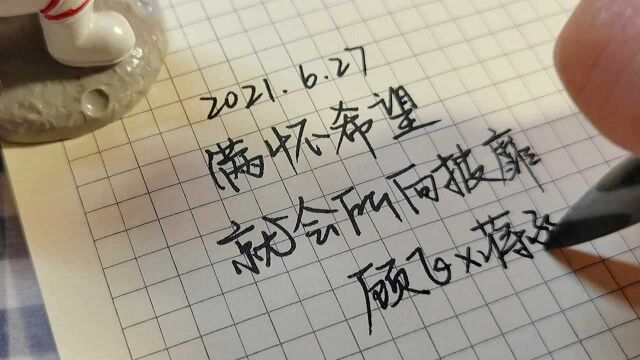 2021.6.27
满怀希望
就会所向披靡
顾飞×蒋丞